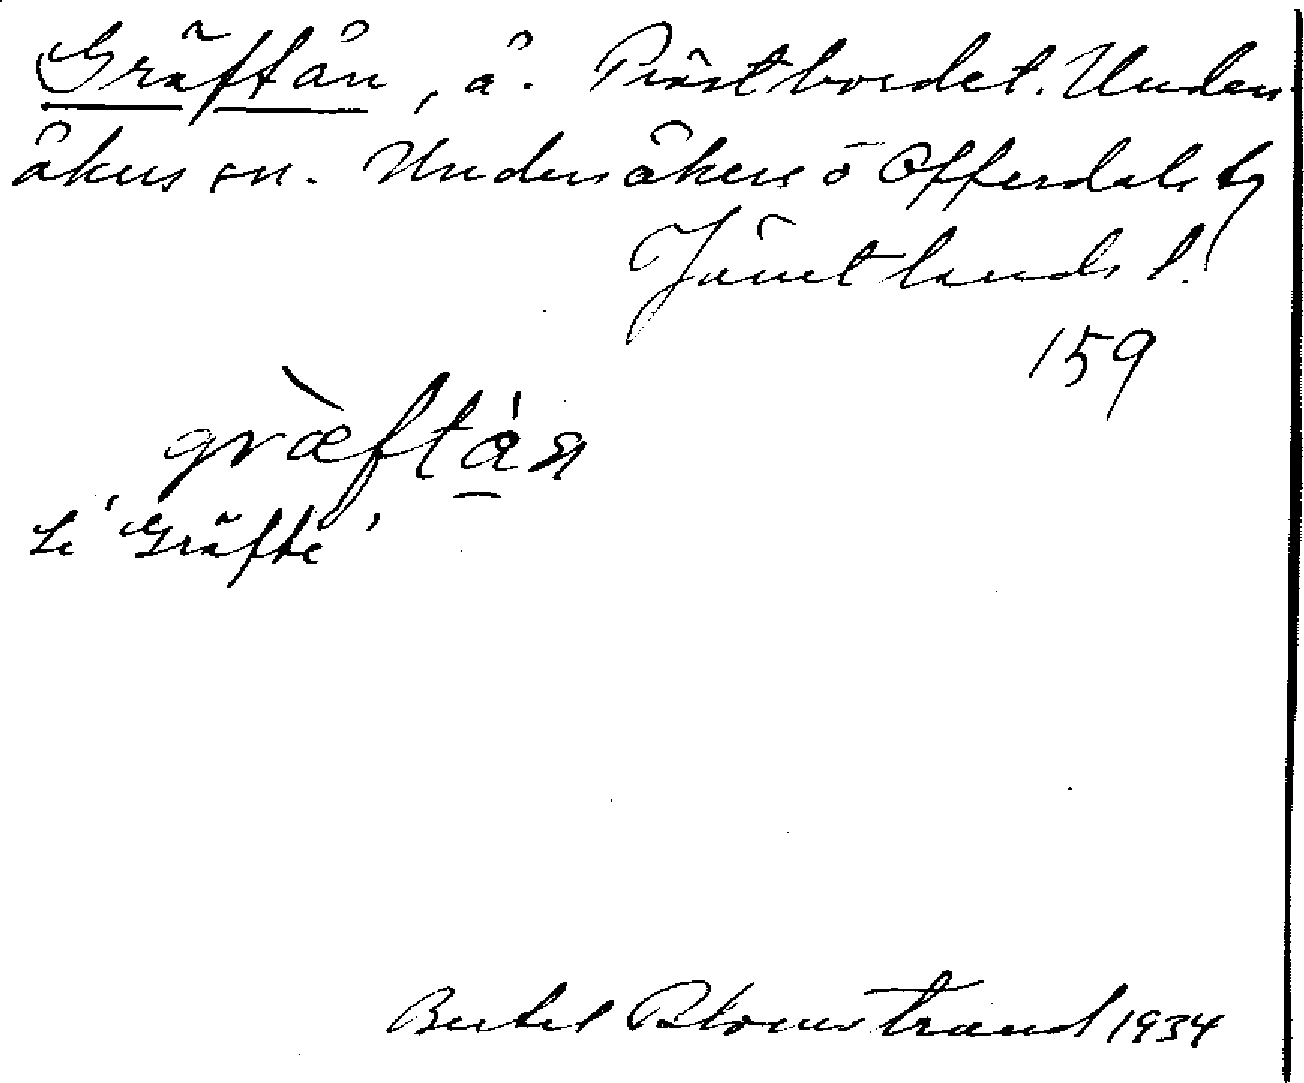 Gräftån, å. Prästbordet. Unders-
åkers sn. Undersåkers o Offerdals tg
Jämtlands l.
159
græftå̀n
Se 'Gräfte'
Bertel Blomstrand 1934